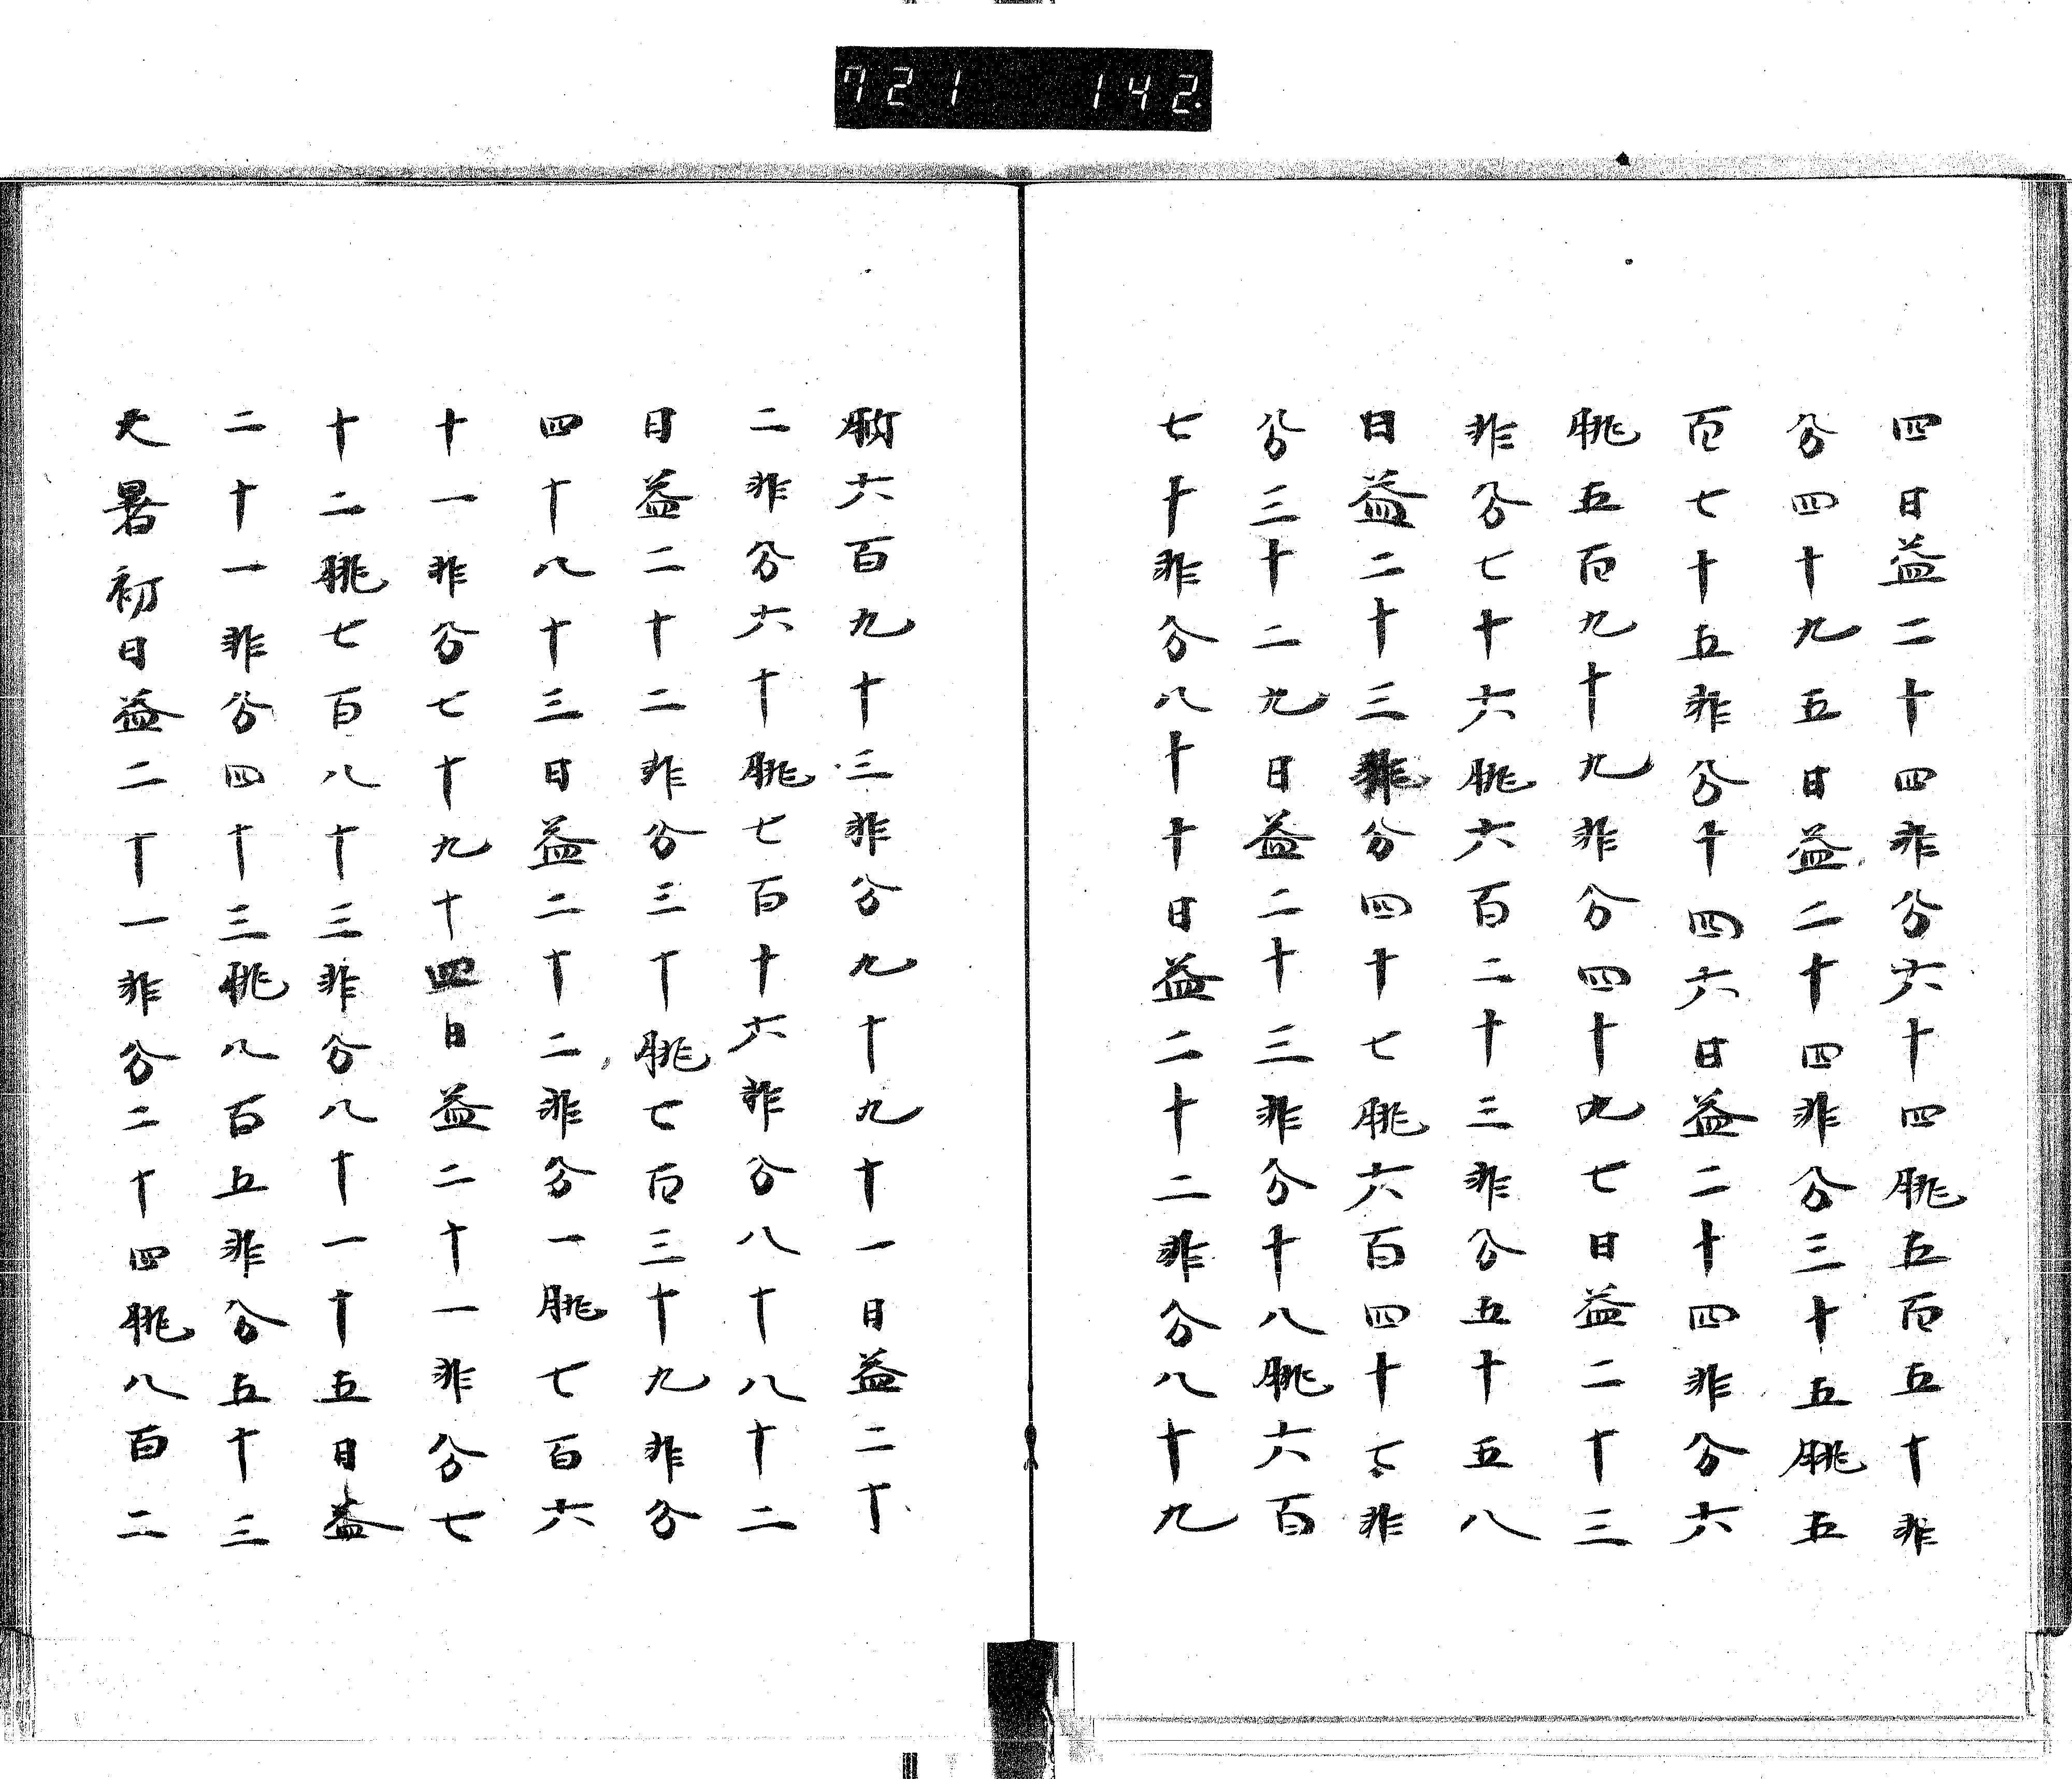 721 142
四日益二十四非分六十四朓五百五十非
分四十九五日益二十四非分三十五朓五
百七十五非分十四六日益二十四非分六
朓五百九十九非分四十九七日益二十三
非分七十六朓六百二十三非分五十五八
日益二十三非分四十七朓六百四十七非
分三十二九日益二十三非分十八朓六百
七十非分八十十日益二十二非分八十九
朓六百九十三非分九十九十一日益二十
二非分六十朓七百十六非分八十八十二
日益二十二非分三十朓七百三十九非分
四十八十三日益二十二非分一朓七百六
十一非分七十九十四日益二十一非分七
十二朓七百八十三非分八十一十五日益
二十一非分四十三朓八百五非分五十三
大暑初日益二十一非分二十四朓八百二